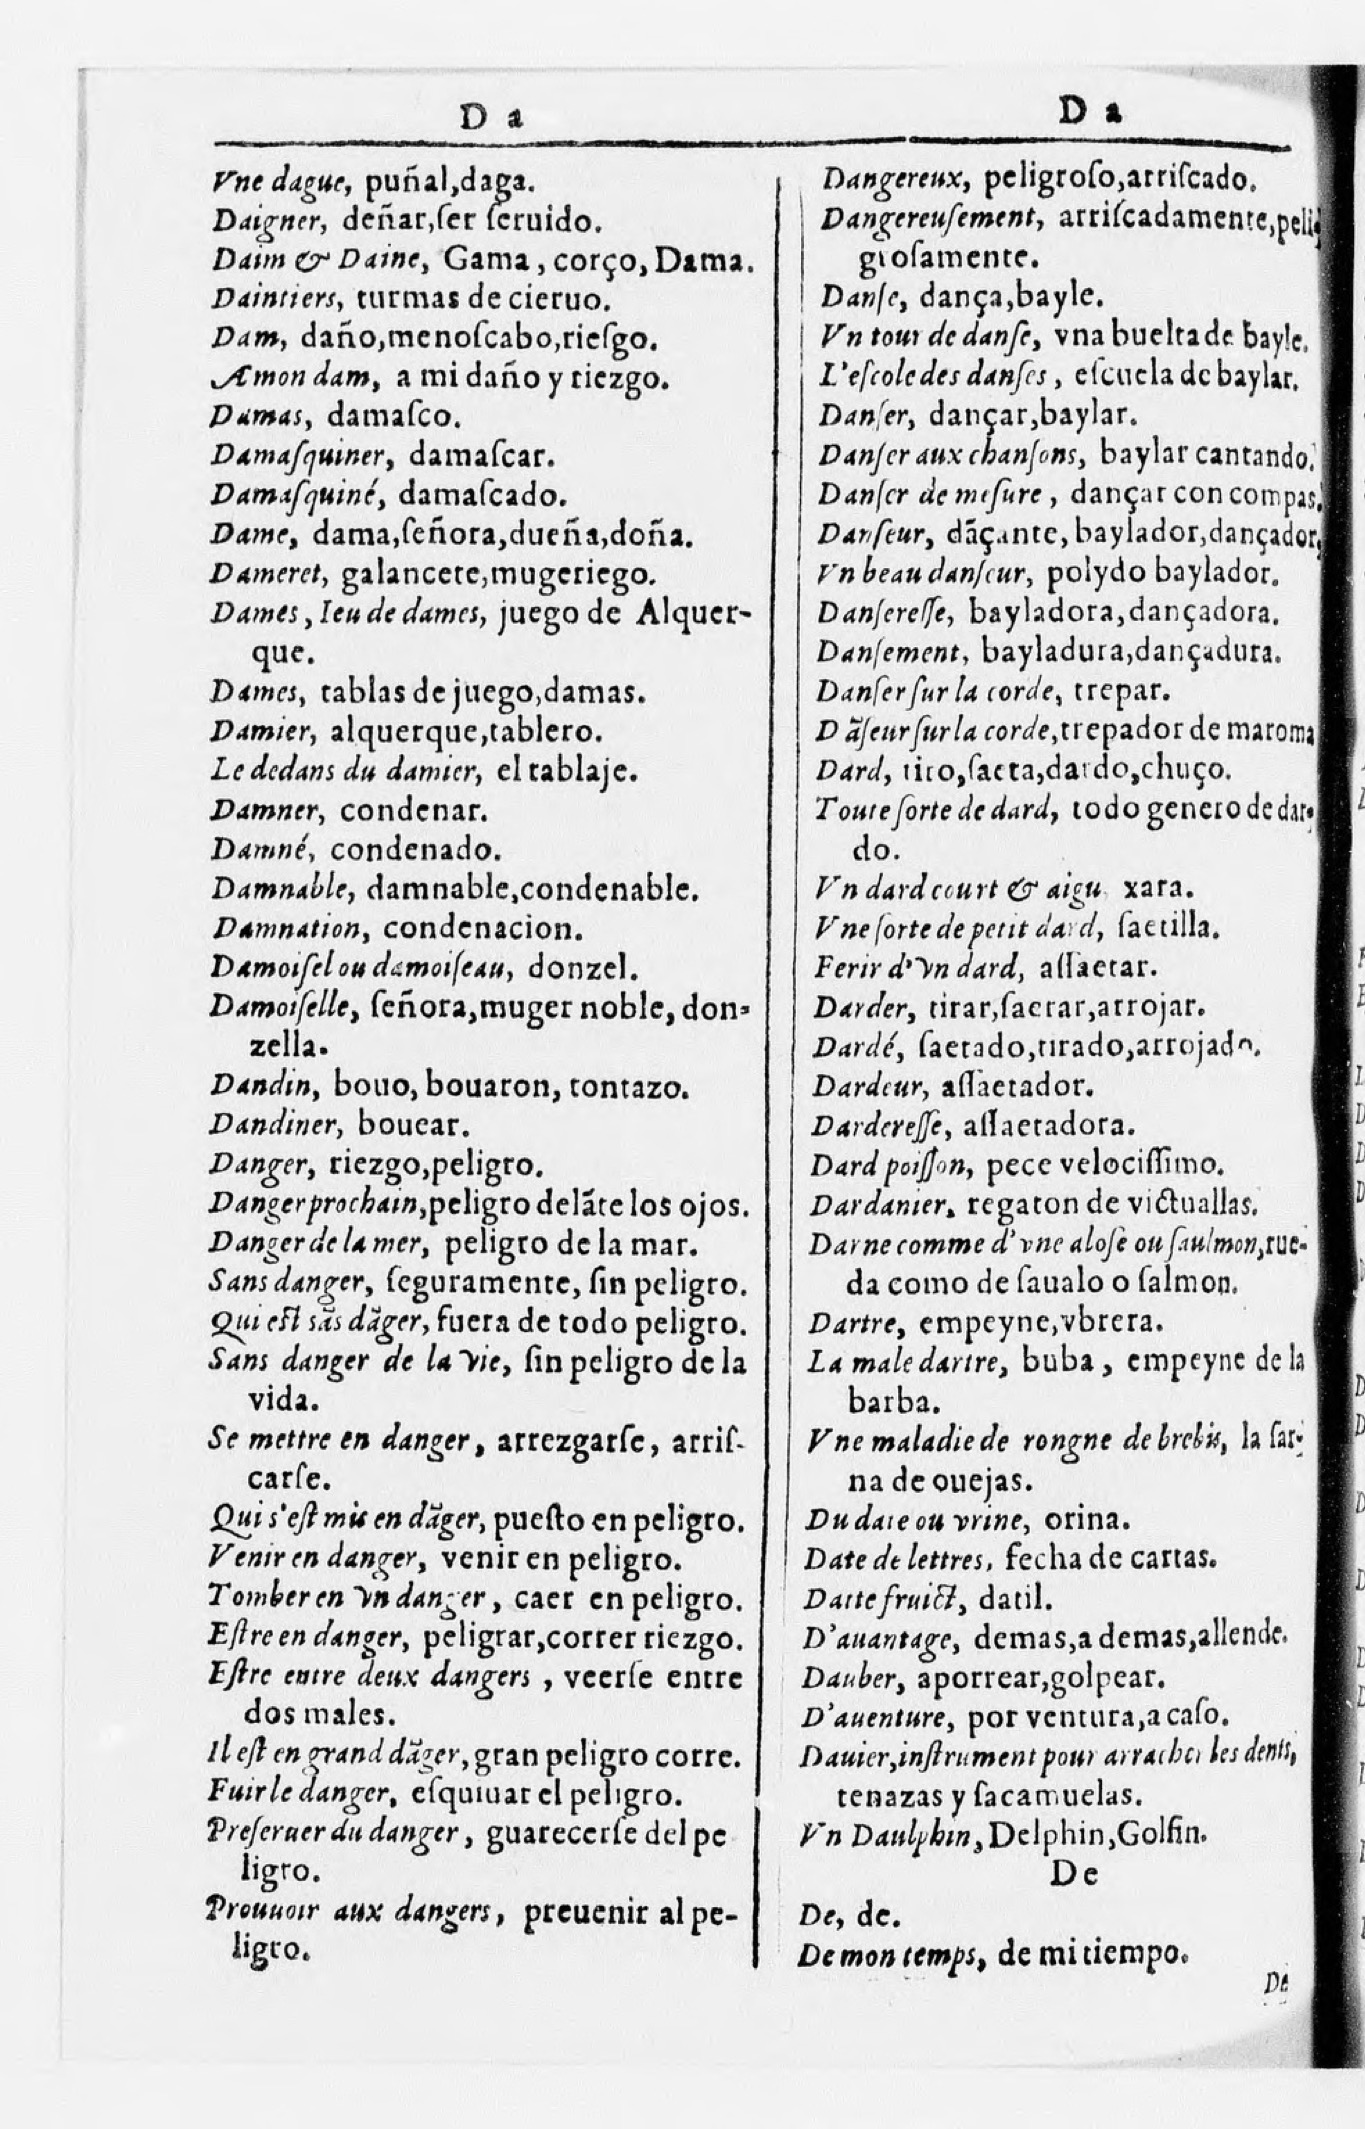 D a
Vne dague, puñal,daga.
Daigner, deñar,ſer ſeruido.
Daim & Daine, Gama, corço, Dama.
Daintiers, turmas de cieruo.
Dam, daño,menoſcabo,rieſgo.
A mon dam, a mi daño y riezgo.
Damas, damaſco.
Damaſquiner, damaſcar.
Damaſquiné, damaſcado.
Dame, dama,ſeñora,dueña,doña.
Dameret, galancete,mugeriego.
Dames, Ieu de dames, juego de Alquer-
que.
Dames, tablas de juego,damas.
Damier, alquerque,tablero.
Le dedans du damier, el tablaje.
Damner, condenar.
Damné, condenado.
Damnable, damnable,condenable.
Damnation, condenacion.
Damoiſel ou damoiſeau, donzel.
Damoiſelle, ſeñora,muger noble, don-
zella.
Dandin, bouo, bouaron, tontazo.
Dandiner, bouear.
Danger, riezgo,peligro.
Danger prochain,peligro delãte los ojos.
Danger de la mer, peligro de la mar.
Sans danger, ſeguramente, ſin peligro.
Qui eſt sãs dãger, fuera de todo peligro.
Sans danger de la vie, ſin peligro de la
vida.
Se mettre en danger, arrezgarſe, arriſ-
carſe.
Qui s'eſt mis en dãger, pueſto en peligro.
Venir en danger, venir en peligro.
Tomber en vn danger, caer en peligro.
Eſtre en danger, peligrar,correr riezgo.
Eſtre entre deux dangers, veerſe entre
dos males.
Il eſt en grand dãger, gran peligro corre.
Fuir le danger, eſquiuar el peligro.
Preſeruer du danger, guarecerſe del pe
ligro.
Prouuoir aux dangers, preuenir al pe-
ligro.
D a
Dangereux, peligroſo,arriſcado.
Dangereuſement, arriſcadamente,peli-
groſamente.
Danſe, dança,bayle.
Vn tour de danſe, vna buelta de bayle.
L'eſcole des danſes, eſcuela de baylar.
Danſer, dançar,baylar.
Danſer aux chanſons, baylar cantando.
Danſer de meſure, dançar con compas.
Danſeur, dãçante, baylador,dançador,
Vn beau danſeur, polydo baylador.
Danſereſſe, bayladora,dançadora.
Danſement, bayladura,dançadura.
Danſer ſur la corde, trepar.
Dãſeur ſur la corde,trepador de maroma
Dard, tiro,ſaeta,dardo,chuço.
Toute ſorte de dard, todo genero de dar-
do.
Vn dard court & aigu xara.
Vne ſorte de petit dard, ſaetilla.
Ferir d'vn dard, aſſaetar.
Darder, tirar,ſaetar,arrojar.
Dardé, ſaetado,tirado,arrojado.
Dardeur, aſſaetador.
Dardereſſe, aſſaetadora.
Dard poiſſon, pece velociſſimo.
Dardanier, regaton de victuallas.
Darne comme d'vne aloſe ou ſaulmon,rue-
da como de ſaualo o ſalmon.
Dartre, empeyne,vbrera.
La male dartre, buba, empeyne de la
barba.
Vne maladie de rongne de brebis, la ſar-
na de ouejas.
Du date ou vrine, orina.
Date de lettres, fecha de cartas.
Datte fruict, datil.
D'auantage, demas,a demas,allende.
Dauber, aporrear,golpear.
D'auenture, por ventura,a caſo.
Dauier,inſtrument pour arracher les dents,
tenazas y ſacamuelas.
Vn Daulphin, Delphin,Golfin.
De
De, de.
De mon temps, de mi tiempo.
De